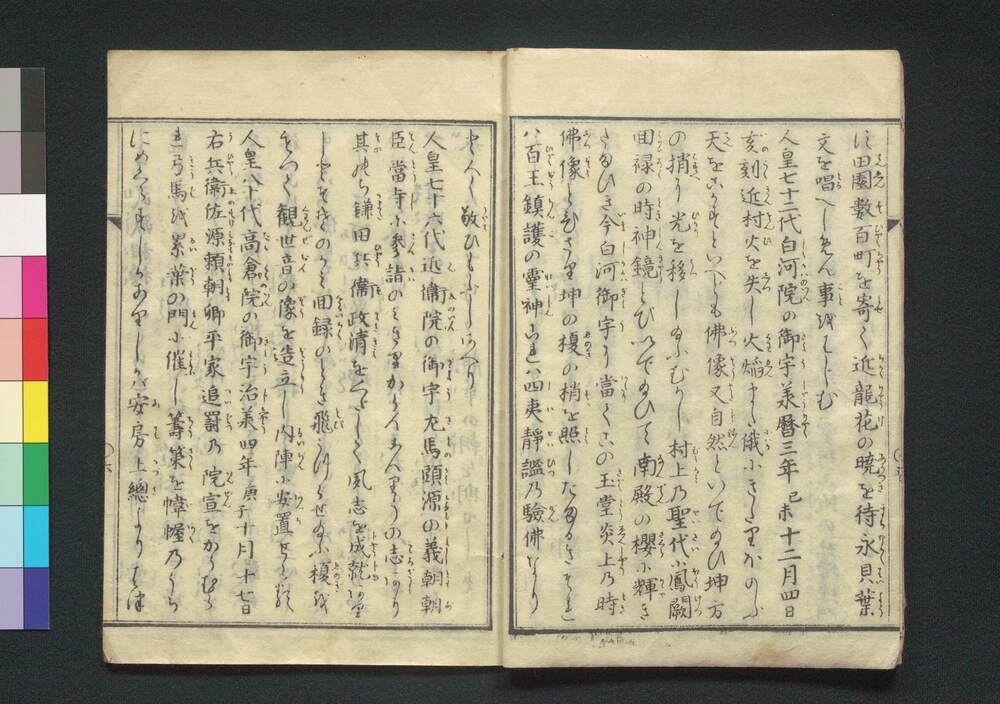 に田園數百町を寄て近龍花の曉を待永貝葉
文を唱へしめん事をはしむ
人皇七十二代白河院の御宇羕暦三年己未十二月四日
亥刻近村火を失し火焔すて俄にきたりかのふ
天をこかすといへとも佛像又自然といてゝひ坤方
の梢に光を移し給ふむかし村上乃聖代に鳳闕
回禄の時神鏡とひいて給ひて南殿の櫻に輝き
たまひき今白河御宇に當てこの玉堂炎上乃時
佛像とひさり坤の榎の梢を照したまふきそれ
八百王鎮護の靈神これハ四夷靜謐乃驗佛なり
人皇七十六代近衞院の御宇左馬頭源の義朝朝
臣當寺に参詣のときりかんをんりうの志あり
其のち鎌田兵衞政清をくたして風志を成就
しそのかみ回録のとき飛うつらせ給ふ榎を
もつて観世音の像を造立し内陣に安置せらる
人皇八十代高倉院の御宇治羕四年庚子十月十七日
右兵衞佐源頼朝卿平家追罸乃院宣をかうむら
れ弓馬を累葉の門に催し籌策を幃幄乃うち
にめくらす しかありしかハ安房上總